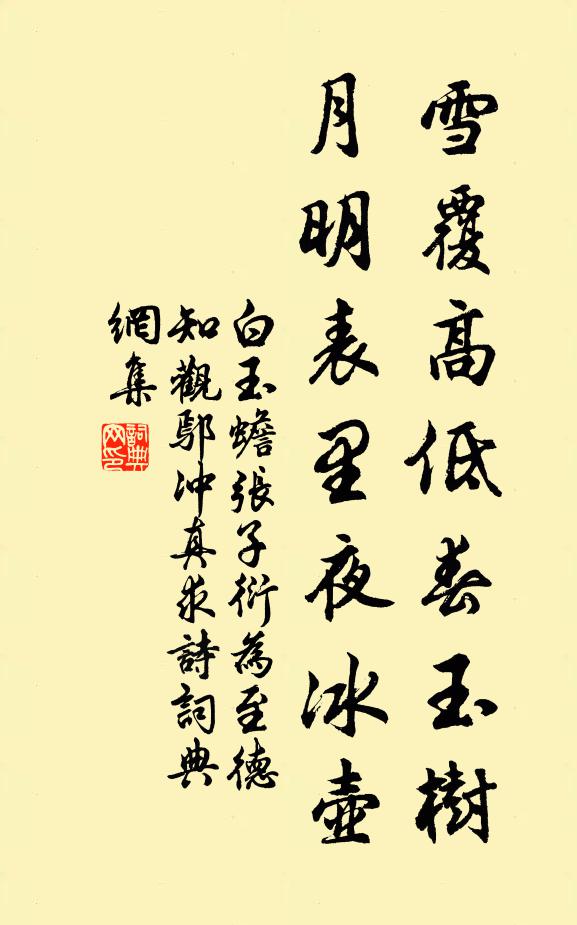 雪覆高低春玉樹
月明表里夜冰壺
白玉蟾張子衍為至德
知觀鄔沖真求詩詞典
網集
詞典網印